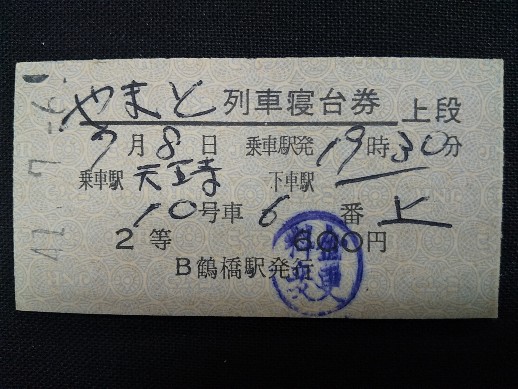 やまと列車寝台券 上段
7月8日 乗車駅発19時30分
乗車駅 天王寺 下車駅
10号車6番上
2等 600円
B鶴橋駅発行
料金変更